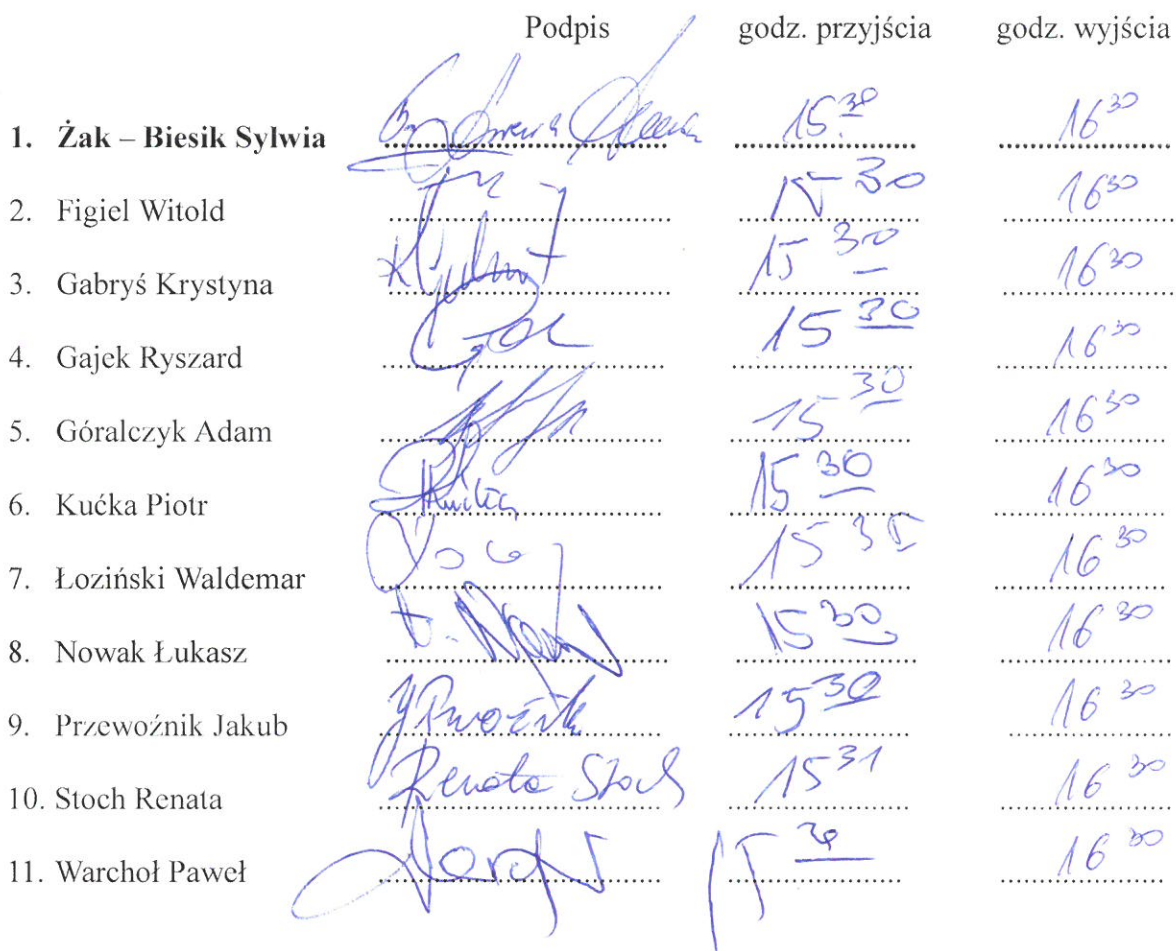 Podpis godz. przyjścia godz. wyjścia
1. Żak – Biesik Sylwia 15 30 16 30
2. Figiel Witold 15 30 16 30
3. Gabryś Krystyna 15 30 16 30
4. Gajek Ryszard 15 30 16 30
5. Góralczyk Adam 15 30 16 30
6. Kućka Piotr 15 30 16 30
7. Łoziński Waldemar 15 35 16 30
8. Nowak Łukasz 15 30 16 30
9. Przewoźnik Jakub 15 30 16 30
10. Stoch Renata Renata Stoch 15 31 16 30
11. Warchoł Paweł 15 30 16 30